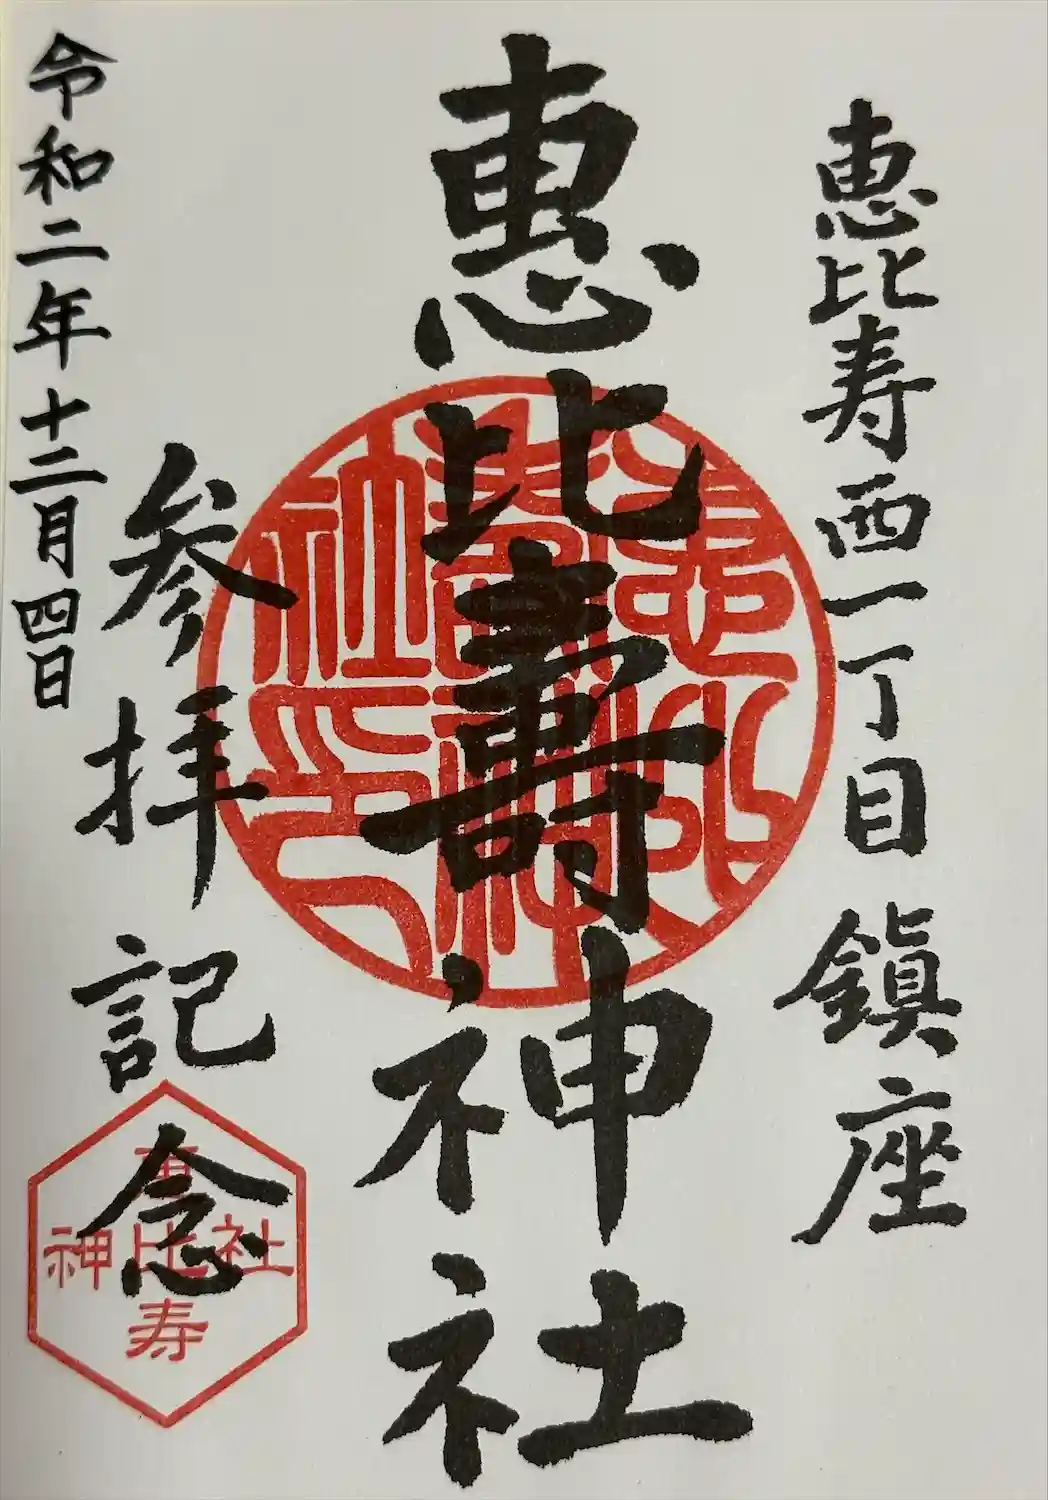 恵比寿西一丁目鎮座
恵比壽神社
恵比壽神社印
参拝記念
恵比寿
神社
令和二年十二月四日